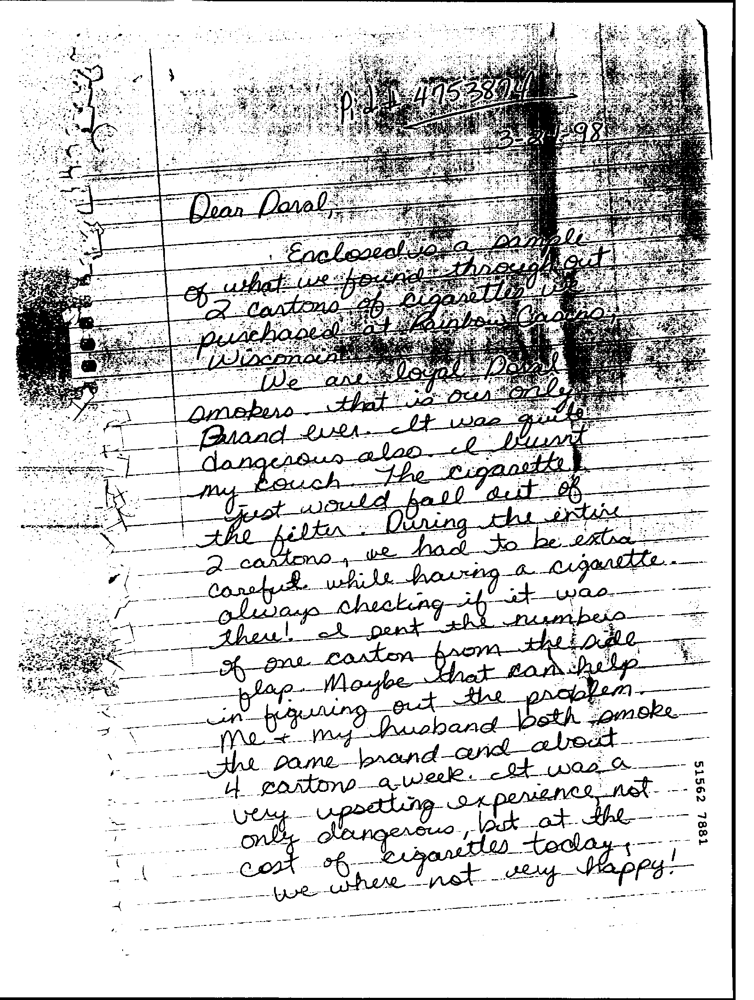 P.I.D 4753874
3-24-98
Dear Doral,
Enclosed is a sample
of what we found through out
2 cartons of cigarettes we
purchased at Rainbow Casino,
Wisconsin.
We are loyal Doral
smokers. that is our only
Brand ever. It was quite
dangerous also. I burnt
my couch. The cigarette
just would fall out of
the filter. During the entire
2 cartons, we had to be extra
careful while having a cigarette.
always checking if it was
there! I sent the numbers
of one carton from the side
flap. Maybe that can help
in figuring out the problem.
Me + my husband both smoke
the same brand and about
4 cartons a week. It was a
very upsetting experience, not
only dangerous, but at the
cost of cigarettes today,
we where not very Happy!
51562 7881